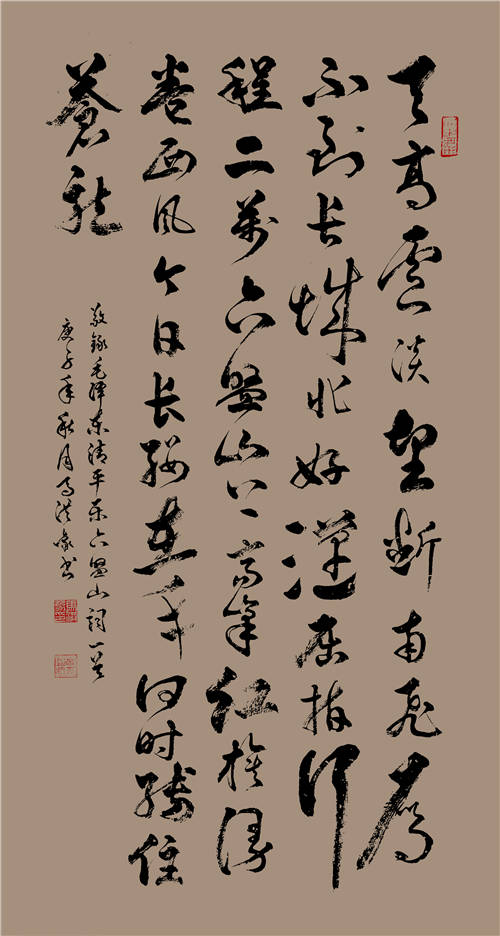 天高雲淡望断南飛雁
不到长城非好漢屈指行
程二萬六盘山上高峰红旗漫
卷西風今日长缨在手何时缚住
蒼龍
敬録毛泽东清平乐六盘山詞一首
庚子年秋月洪书